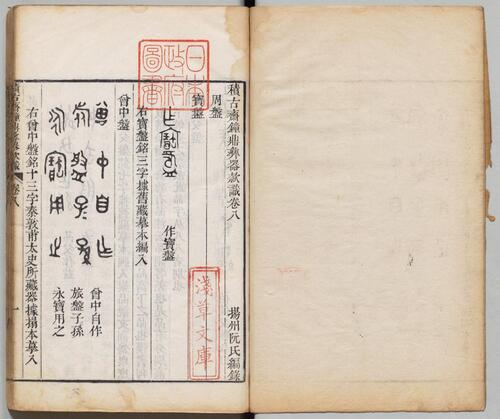 積古齋鐘鼎彝器款識卷八
揚州阮氏編錄
周盤
寶盤
作寶盤
右寶盤銘三字據舊藏摹本編入
曾中盤
曾中自作
旅盤子孫
永寶用之
右曾中盤銘十三字秦敦甫太史所藏器據搨本摹入
積古齋鐘鼎彝器款識
卷八
一
日本
政府
圖書
淺草文庫